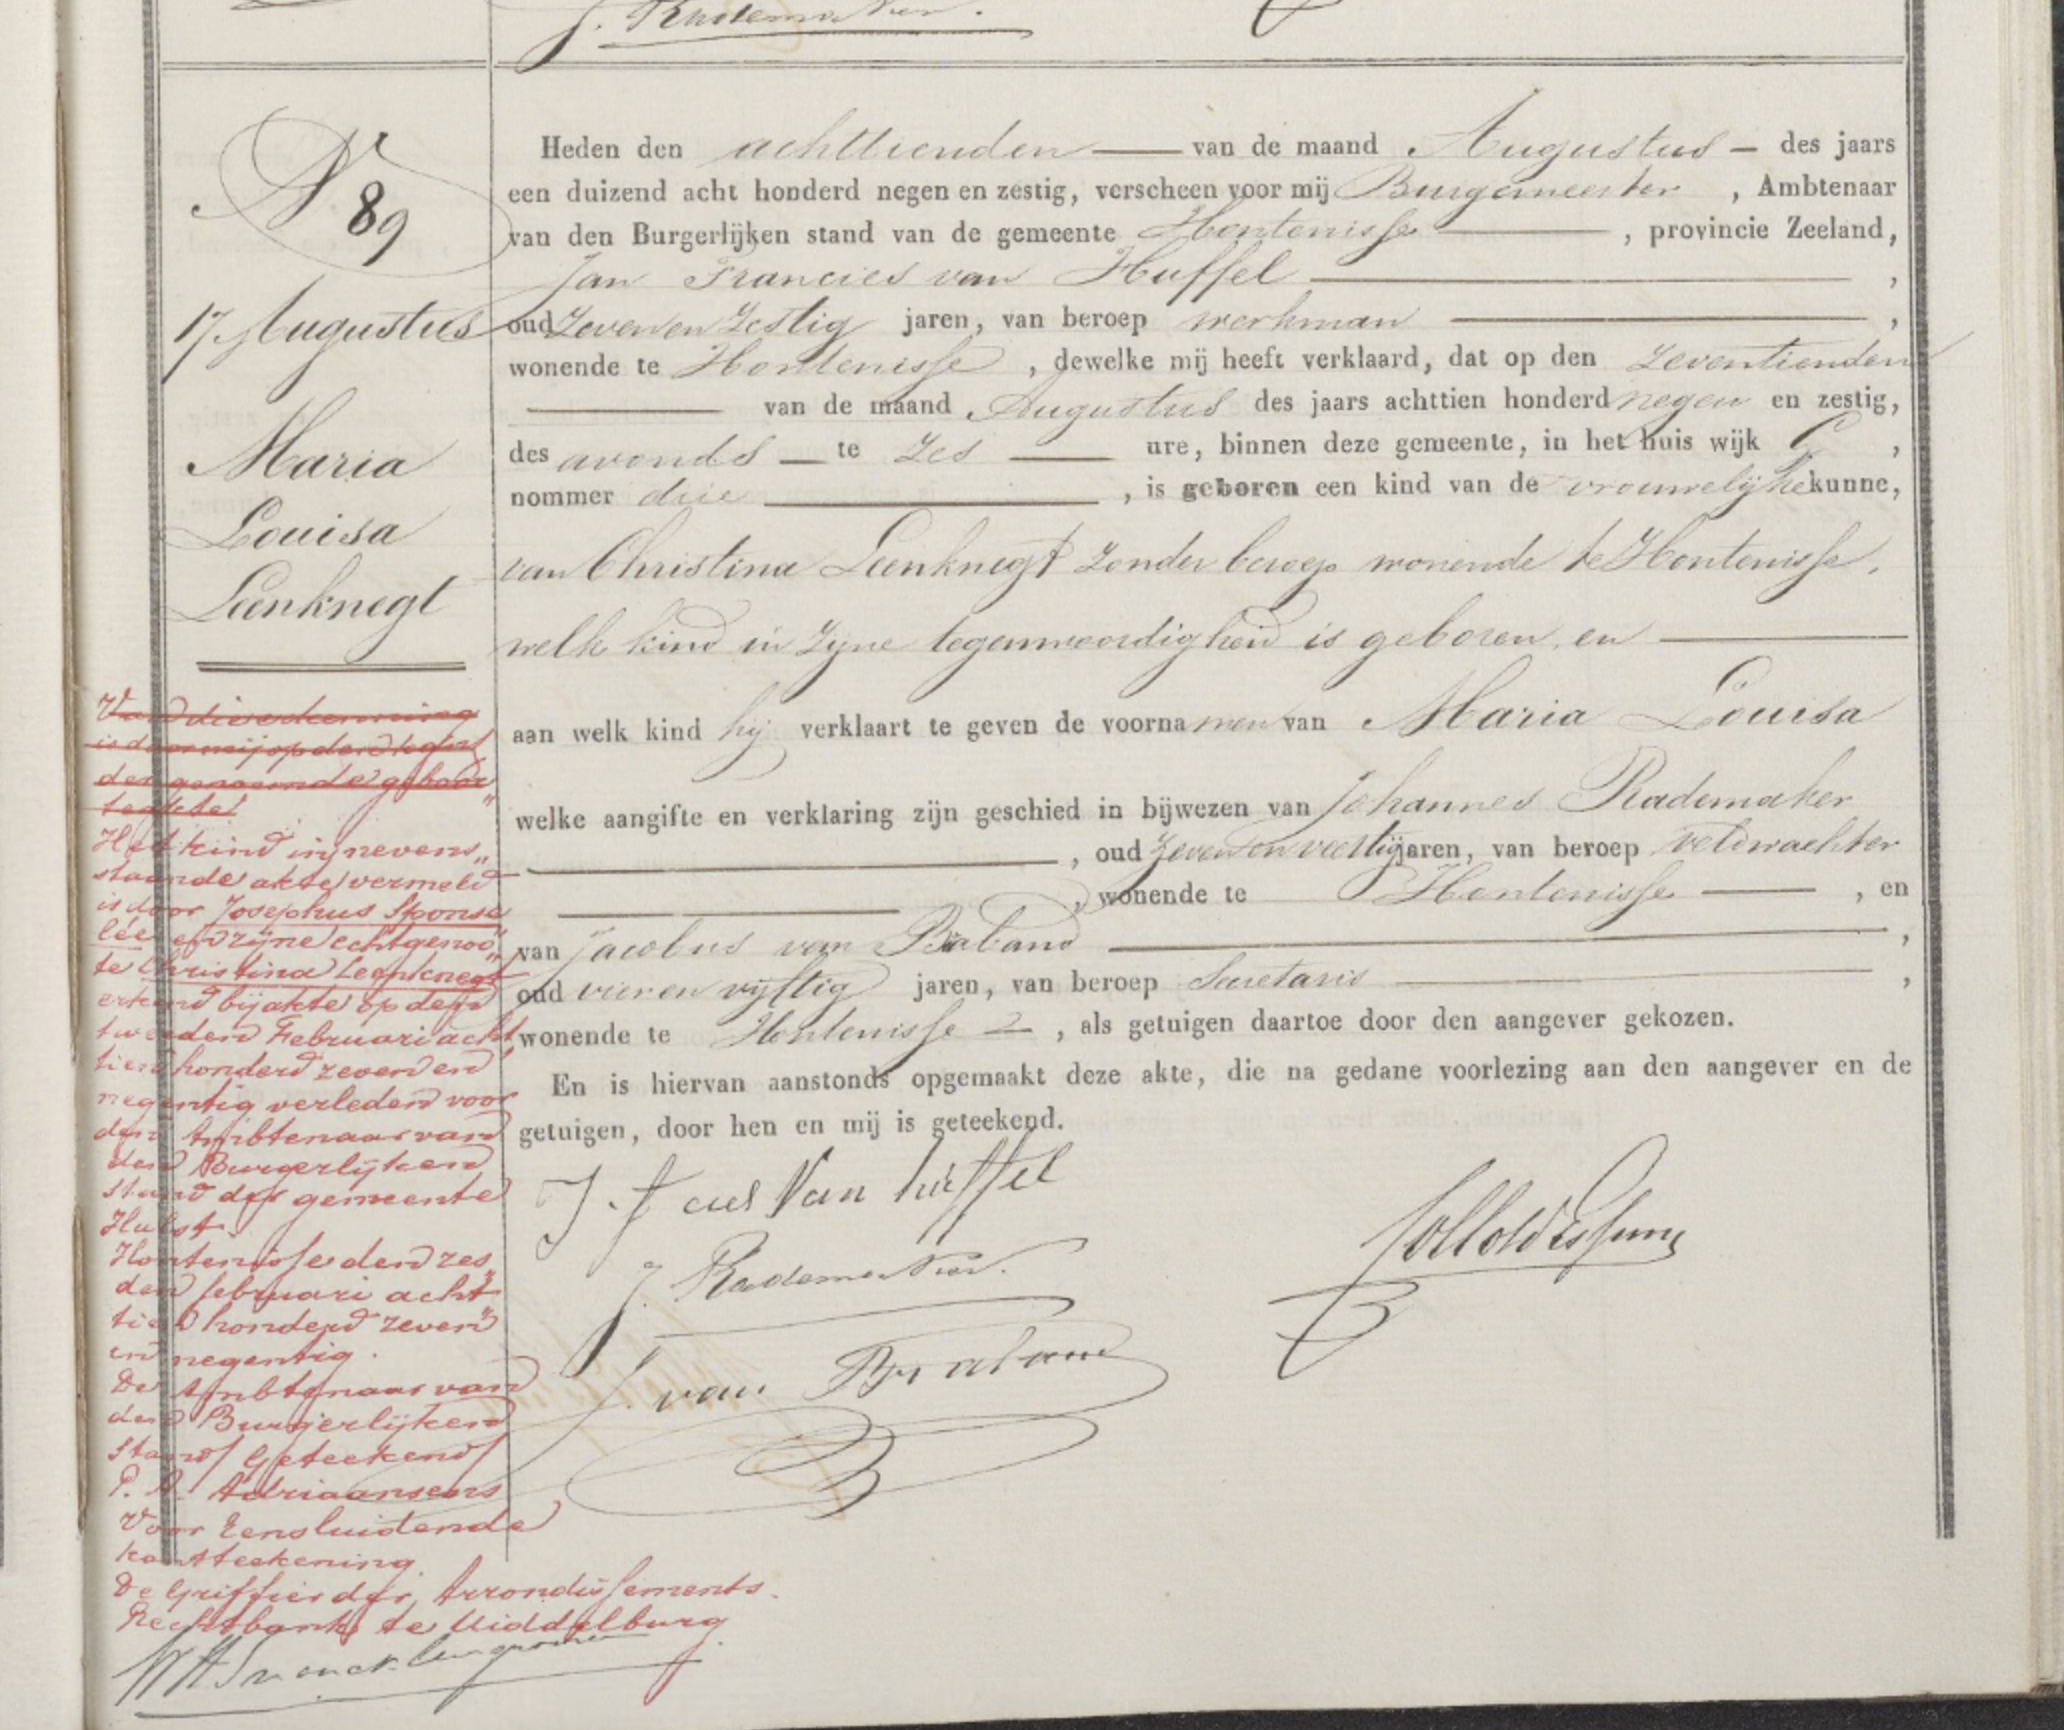 J. Rademaker.
N 89
17 Augustus
Maria
Louisa
Leenknegt
Heden den achttienden van de maand Augustus des jaars
een duizend acht honderd negen en zestig, verscheen voor mij Burgemeester, Ambtenaar
van den Burgerlijken stand van de gemeente Hontenisse, provincie Zeeland,
Jan Francies van Huffel,
oud zeven en zestig jaren, van beroep werkman,
wonende te Hontenisse, dewelke mij heeft verklaard, dat op den zeventienden
van de maand Augustus des jaars achttien honderd negen en zestig,
des avonds te zes ure, binnen deze gemeente, in het huis wijk C,
nommer drie, is geboren een kind van de vrouwelijke kunne,
van Christina Leenknegt zonder beroep wonende te Hontenisse,
welk kind in zijne tegenwoordigheid is geboren, en
aan welk kind hij verklaart te geven de voornamen van Maria Louisa
welke aangifte en verklaring zijn geschied in bijwezen van Johannes Rademaker
, oud zeven en veertig jaren, van beroep veldwachter
, wonende te Hontenisse, en
van Jacobus van Braband,
oud vier en vijftig jaren, van beroep Secretaris,
wonende te Hontenisse, als getuigen daartoe door den aangever gekozen.
En is hiervan aanstonds opgemaakt deze akte, die na gedane voorlezing aan den aangever en de
getuigen, door hen en mij is geteekend.
J. f cies Van huffel
J. Rademaker.
J. van Braband
Van die erkenning
is door mij op den
der genoemde geboor„
teakte
Het kind in nevens„
staande akte vermeld
is door Josephus Sponse
lée en zijne echtgenoo„
te Christina Leenknegt
erkend bij akte op den
tweeden Februari acht
tien honderd zeven en
negentig verleden voor
den Ambtenaar van
den Burgerlijken
stand der gemeente
Hulst.
Hontenisse den zes„
den februari acht„
tien honderd zeven„
en negentig.
De Ambtenaar van
den Burgerlijken
stand/ Geteekend/
P. A. Adriaansens
Voor Eensluidende
kantteekening.
De Griffier der Arrondissements.
Rechtbank te Middelburg